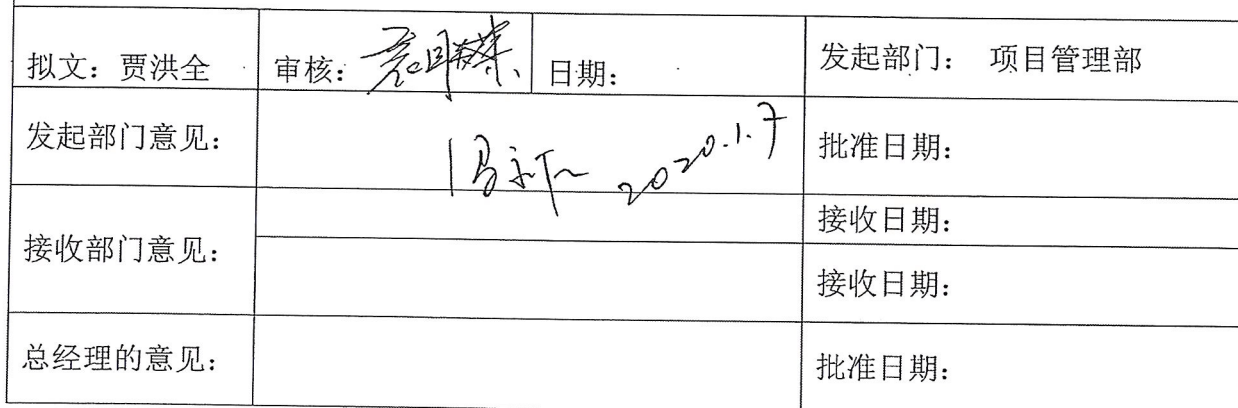 拟文：贾洪全 审核： 日期： 发起部门： 项目管理部
发起部门意见： 2020.1.7 批准日期：
接收部门意见： 接收日期：
接收日期：
总经理的意见： 批准日期：